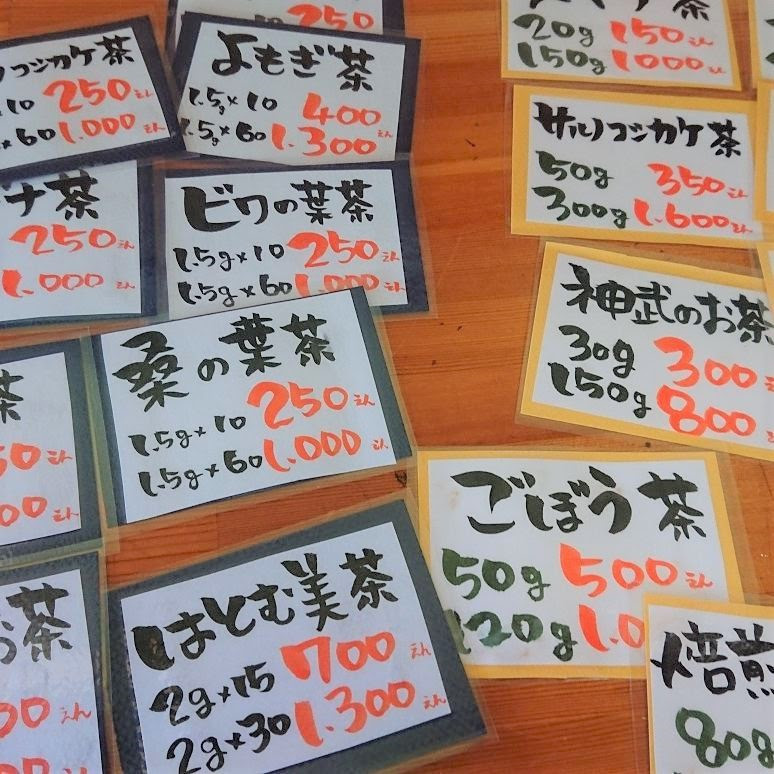 250
よもぎ茶
1.5g×10 400
1.5g×60 1.300えん
コシカケ茶
10 250えん
×60 1.000えん
ビワの葉茶
1.5g×10 250えん
1.5g×60 1.000えん
ナ茶
250えん
1.000えん
桑の葉茶
1.5g×10 250えん
1.5g×60 1.000えん
茶
50えん
00えん
はとむ美茶
2g×15 700えん
2g×30 1.300えん
お茶
00えん
茶
20g 150えん
150g 1000えん
サルノコシカケ茶
50g 350えん
300g 1.600えん
神武のお茶
30g 300えん
150g 800え
ごぼう茶
50g 500えん
120g 1.0
焙煎
80g